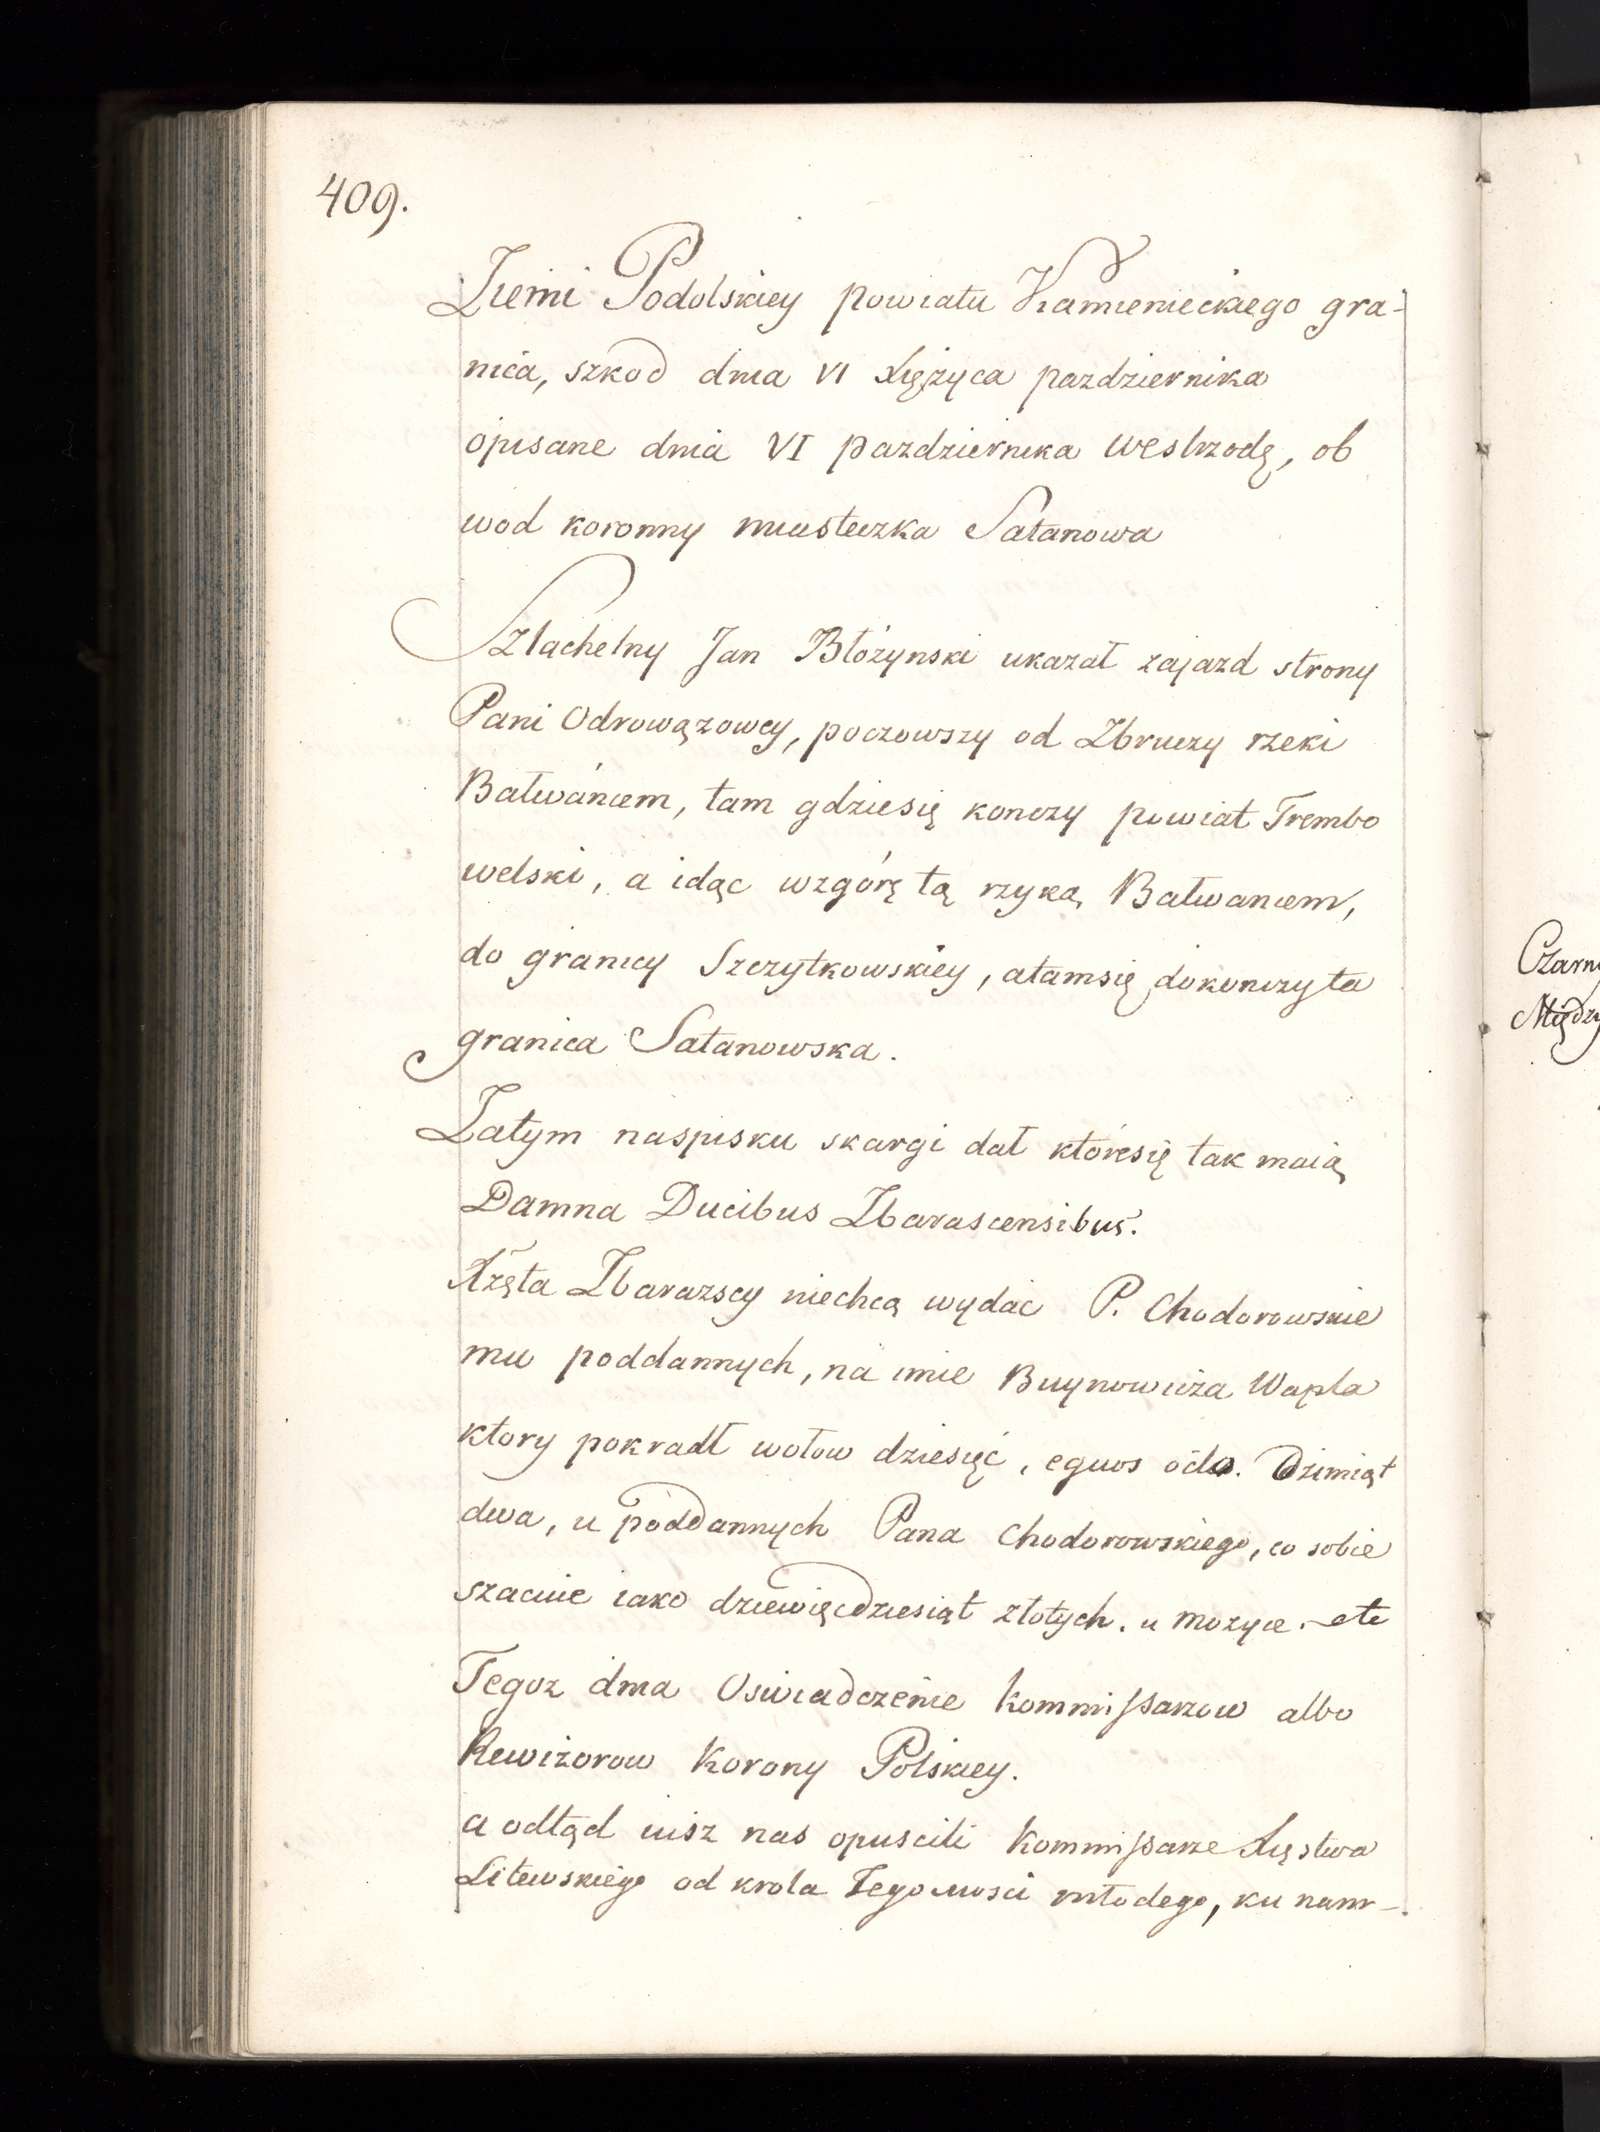 409.
Ziemi Podolskiey powiatu Kamienieckiego gra-
nica, szkod dnia VI Xiężyca pazdziernika
opisane dnia VI pazdziernika westrzodę, ob
wod koronny miasteczka Satanowa
Szlachetny Jan Błóżynski ukazał zajazd strony
Pani Odrowązowey, poczowszy od Zbruczy rzeki
Bałwáncem, tam gdziesię konczy powiat Trembo
welski, a idąc wzgórę tą rzyką Bałwancem,
do granicy Szczytkowskiey, atamsię dokonczy ta
granica Satanowska.
Zatym naspisku skargi dał którësię tak maią
Damna Ducibus Zbarascensibus.
Xzęta Zbarazscy niechcą wydac P. Chodorowskie
mu poddannych, na imie Buynowicza Wapla
ktory pokradł wołow dziesięć, equos octo. Dzimiąt
dwa, u poddannych Pana Chodorowskiego, co sobie
szacuie iako dziewięcdziesiąt złotych. u Mozyce. etc
Tegoz dnia Oswiadczenie Kommissarzow albo
Rewizorow Korony Polskiey.
a odtąd iusz nas opuscili Kommissarze Xięstwa
Litewskiego od krola Jegomosci młodego, ku nam-
Czarn
Między